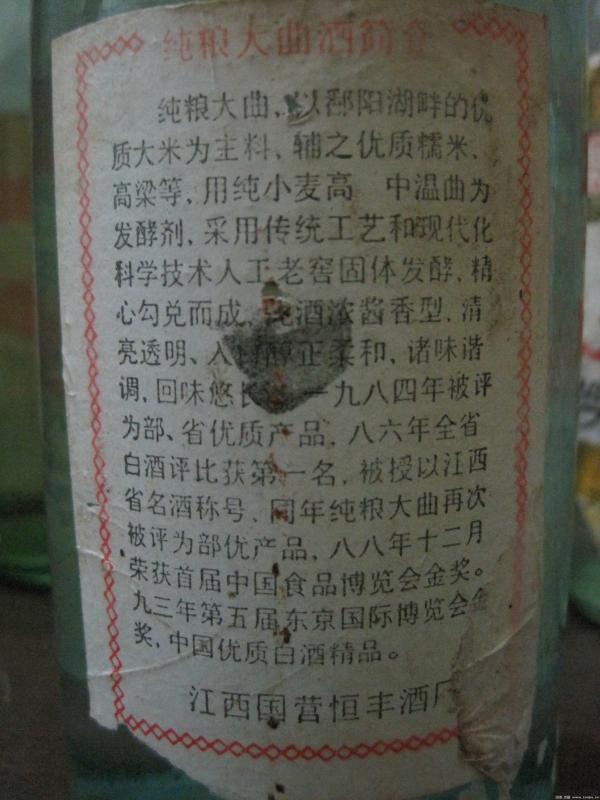 纯粮大曲酒简介
纯粮大曲,以鄱阳湖畔的优
质大米为主料、辅之优质糯米、
高粱等,用纯小麦高 中温曲为
发酵剂,采用传统工艺和现代化
科学技术人工老窖固体发酵、精
心勾兑而成,酒浓酱香型,清
亮透明、入口醇正柔和、诸味谐
调,回味悠长 一九八四年被评
为部、省优质产品,八六年全省
白酒评比获第一名,被授以江西
省名酒称号,同年纯粮大曲再次
被评为部优产品,八八年十二月
荣获首届中国食品博览会金奖。
九三年第五届东京国际博览会金
奖,中国优质白酒精品。
江西国营恒丰酒厂